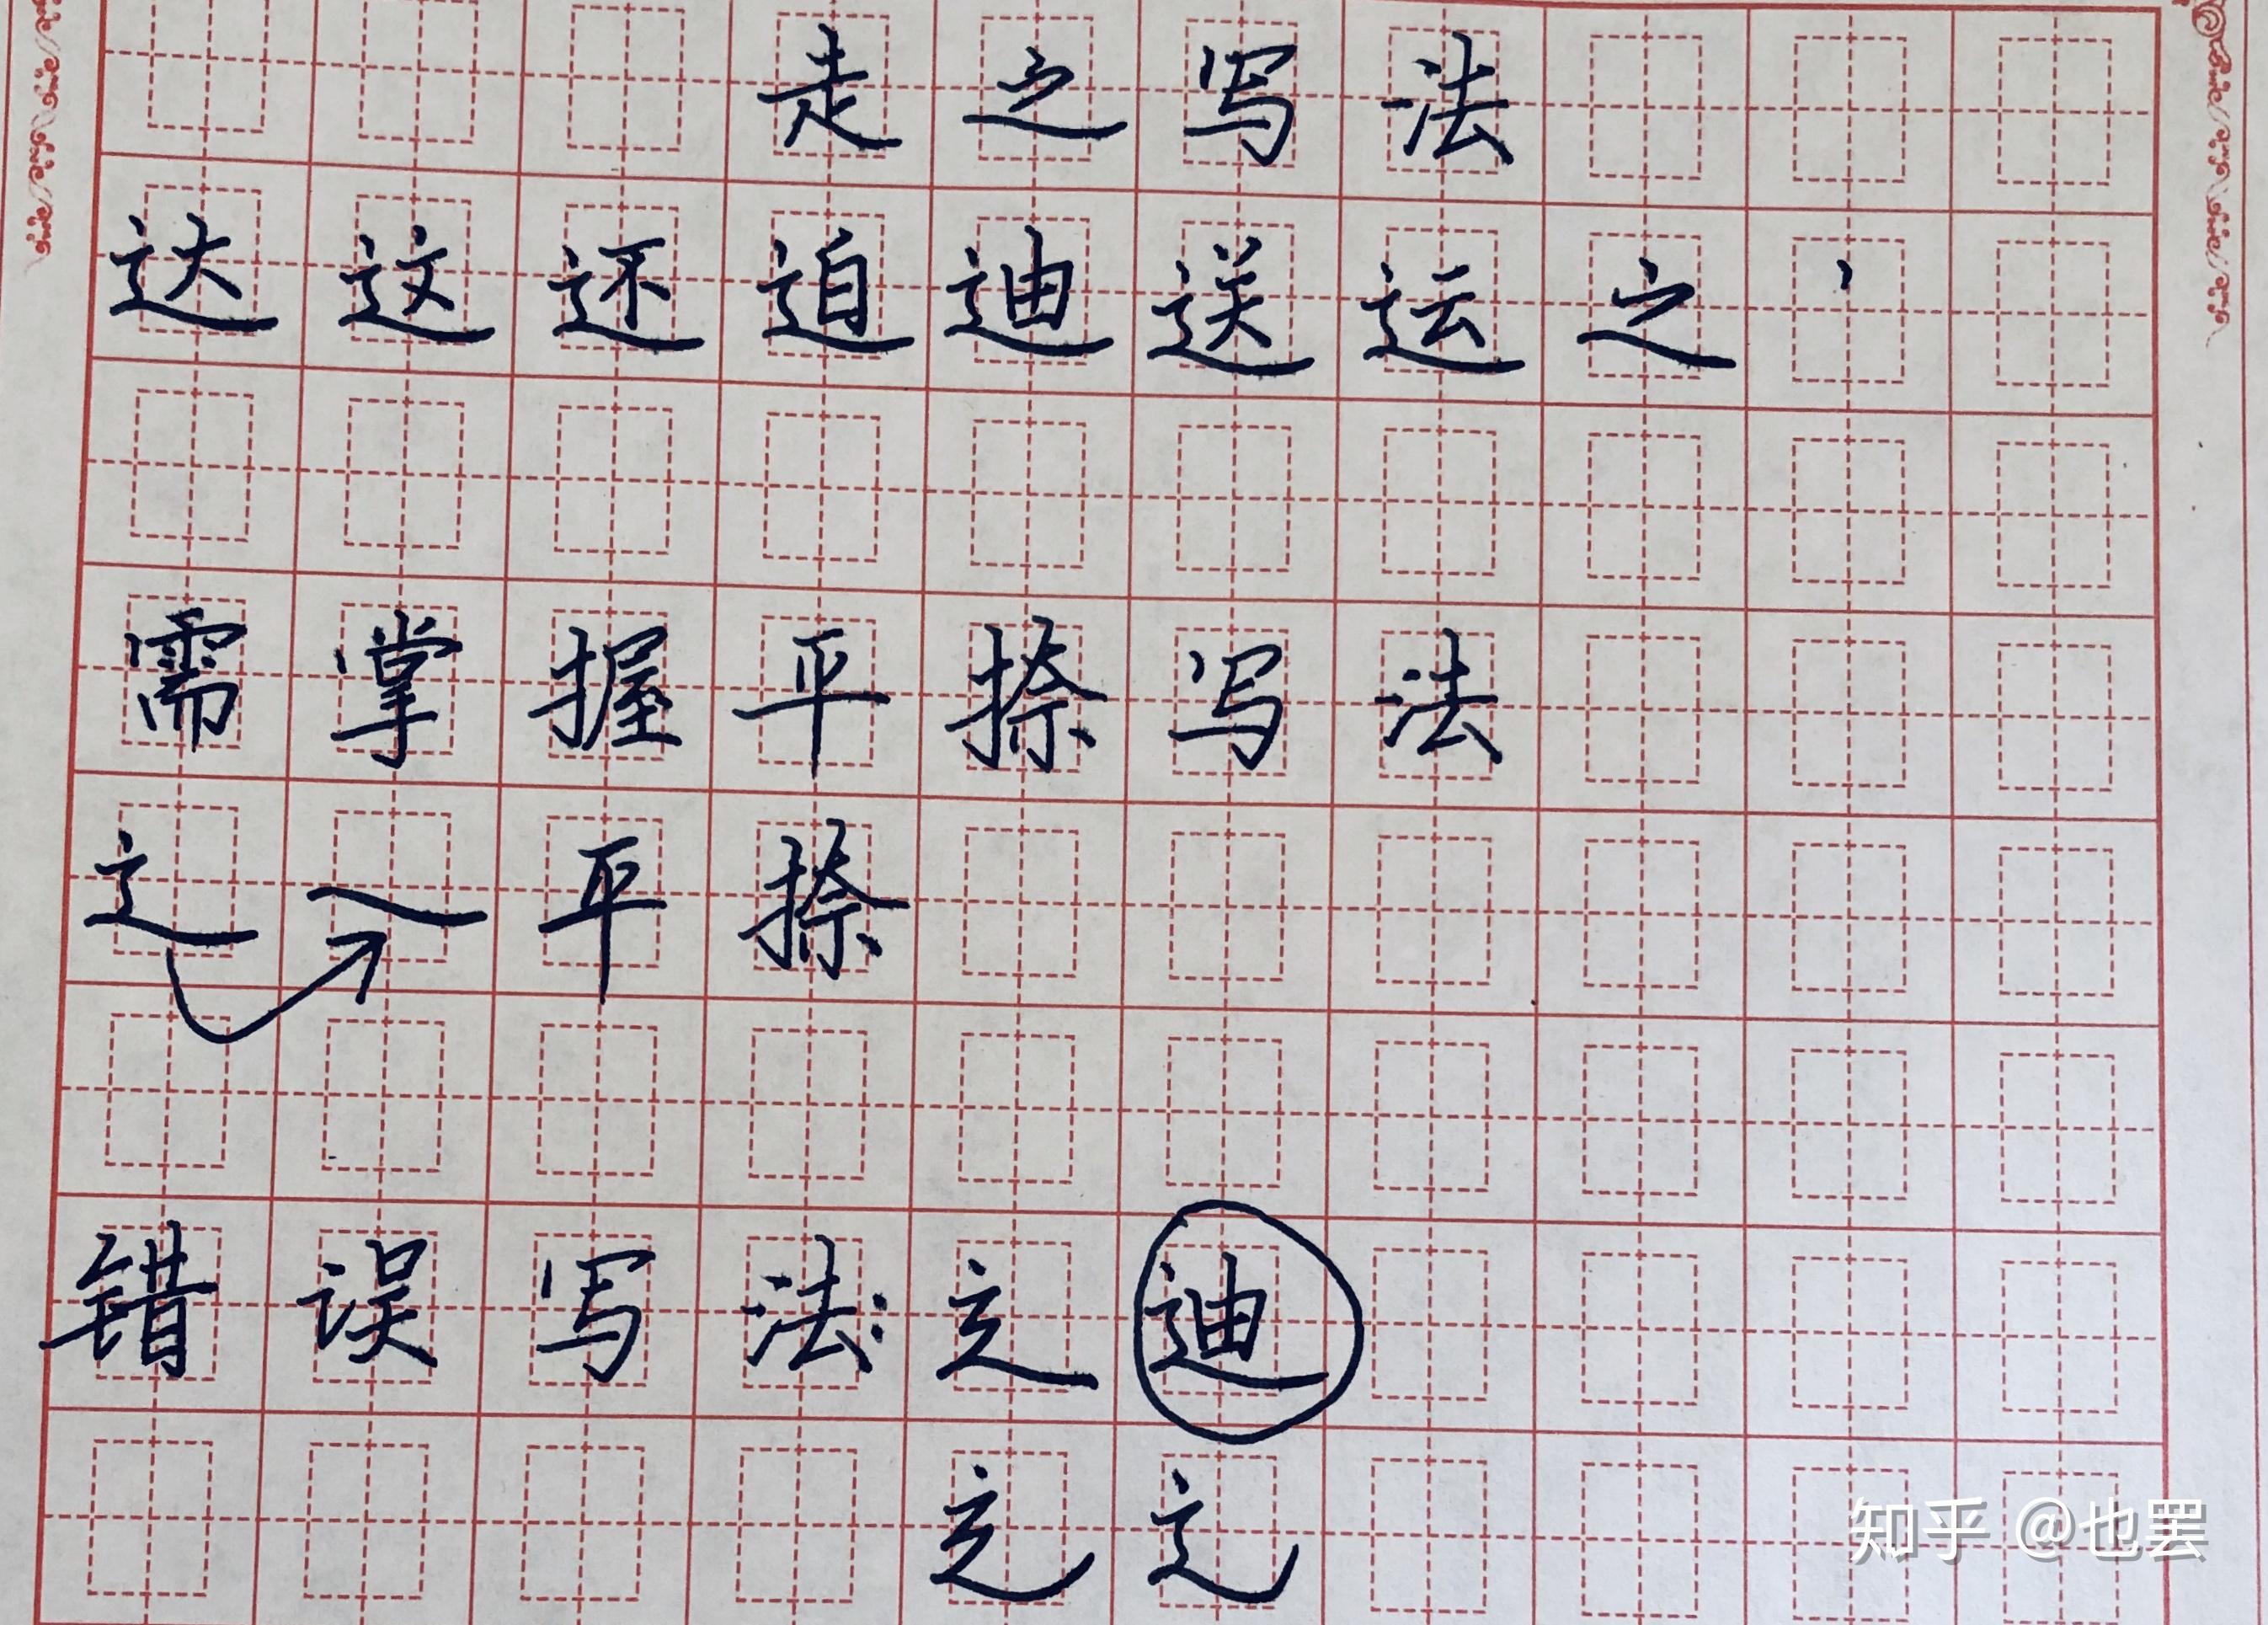 走之写法
达这还迫迪送运之丶
需掌握平捺写法
辶㇏平捺
错误写法:辶迪
辶辶
知乎 @也罢